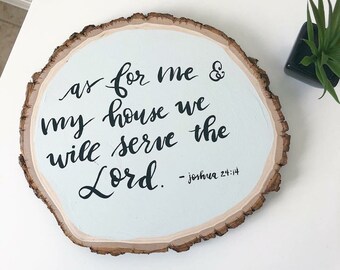 as for me &
my house we
will serve the
Lord. - joshua 24:14